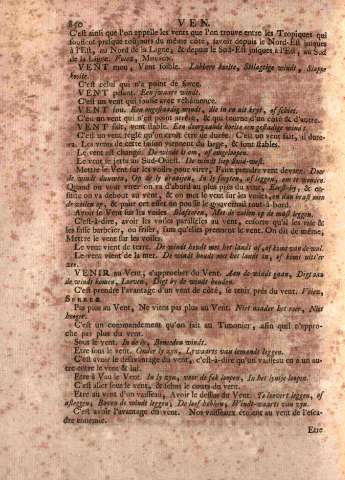 850 VEN.
C'est ainsi que l'on appelle les vents que l'on trouve entre les Tropiques qui
soufflent presque toujours du même côté, savoir depuis le Nord-Est jusques
à l'Est, au Nord de la Ligne, & depuis le Sud-Est jusques à l'Est, au Sud
de la Ligne. Voiez, MOUSSON.
VENT mou, Vent foible. Labbere koelte, Slap
koelte.
C'est celui qui n'a point de force.
VENT pesant. Een zwaare windt.
C'est un vent qui soufle avec véhémence.
VENT fou. Een ongestadig windt, die in en uit krijt, of schiet.
C'est un vent qui n'est point arrêté, & qui tourne d'un côté & d'autre.
VENT fait, vent stable. Een doorgaande koelte een gestadige windt.
C'est un vent réglé qu'on croit être de durée. C'est un vent fait, il dure-
ra. Les vents de cette saison viennent du large, & sont stables.
Le vent est changé. De windt is om, of omgeloopen.
Le vent se jetta au Sud-Ouest. De windt liep Suid-west.
Mettre le Vent sur les voiles pour virer, Faire prendre vent devant. Door
de windt duuwen, Op de ly te leggen, om te wenden
Quand on veut virer on va d'abord au plus près du vent, & en-
suite on va debout au vent, & on met le vent sur les voiles,
de zeilen op, & pour cet effet on pousse le gouvernail tout-à-bord.
Avoir le Vent sur les voiles. Met de zeilen op de mast leggen.
C'est-à-dire, avoir les voiles paralléles au vent, ensorte qu'il les rase &
les fasse barbeier, ou friser, sans qu'elles prennent le vent. On dit de même,
Mettre le vent sur les voiles.
Le vent vient de terre. De windt houdt met het landt af, of komt van de wal.
Le vent vient de la Mer. De windt houdt met het landt in, of komt uit'er
zee.
VENIR au Vent, s'approcher du Vent. Aan de windt gaan, Digt aan
de windt komen, Loeven, Digt by de windt houden.
C'est prendre l'avantage d'un vent de côté, se tenir près du vent. Voiez,
SERRER.
Pas plus au Vent, Ne viens pas plus au Vent. Niet naader het roer, Niet
hooger.
C'est un commandement qu'on fait au Timonier, afin qu'il n'appro-
che pas plus du vent.
Sous le vent. In de ly, Beneden windt.
Etre sous le vent. Onder ly zyn, Lywaarts van iemandt leggen.
C'est avoir le désavantage du vent, c'est-à-dire qu'un vaisseau en a un au-
tre entre le vent & lui.
Etre à Vau le Vent. In ly zyn, voor de fok loopen, In het lyntje loopen.
C'est aller sous le vent, & selon le cours du vent.
Etre au vent d'un vaisseau, Avoir le dessus du Vent. Te loevert leggen, of
afleggen, Boven de windt leggen, De loef hebben, Windt-waarts van zyn.
C'est avoir l'avantage du vent. Nos vaisseaux étoient au vent de l'esca-
dre ennemie.
Etre